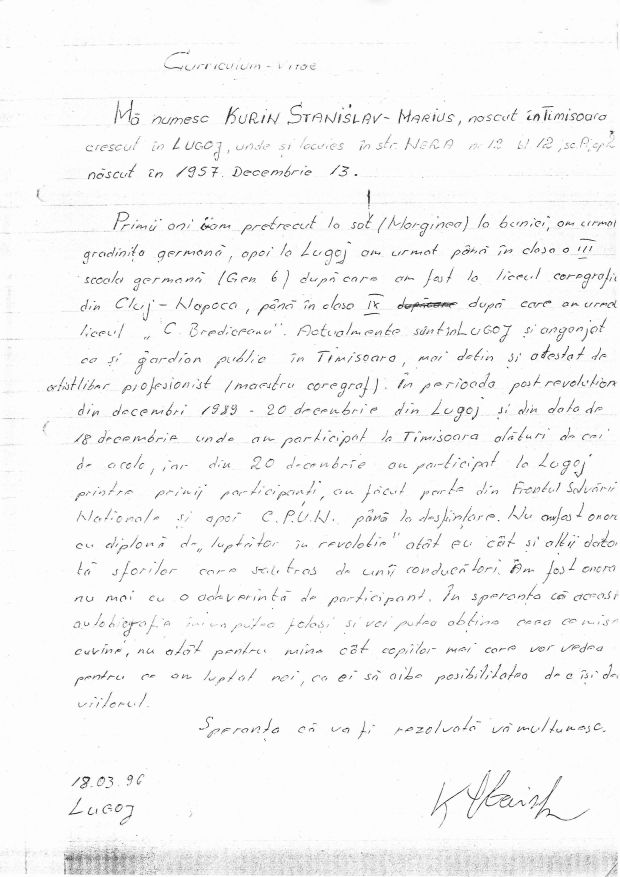 Curriculum-vitae
Mă numesc KURIN STANISLAV-MARIUS, născut în Timisoara
crescut în LUGOJ, unde și locuies în str. NERA nr 12 bl 12, sc.A, ap 2
născut în 1957. Decembrie 13.
Primii ani am petrecut la sat (Marginea) la bunici, am urmat
gradinița germană, apoi la Lugoj am urmat până în clasa a III
scoala germană (Gen 6) după care am fost la liceul coregrafic
din Cluj-Napoca, până în clasa IX după care am urmat
liceul „C. Brediceanu". Actualmente sânt în LUGOJ și angajat
ca și gardian public în Timisoara, mai dețin și atestat de
artist liber profesionist (maestru coregraf). În perioada post revolution
din decembri 1989 - 20 decembrie din Lugoj și din data de
18 decembrie unde am participat la Timisoara alături de cei
de acolo, iar din 20 decembrie am participat la Lugoj
printre primii participanți, am făcut parte din Frontul Salvării
Naționale și apoi C.P.U.N. până la desființare. Nu am fost onorat
cu diplomă de „luptător în revoluție" atât eu cât și alții dato
tă sforilor care s-au tras de unii conducători. Am fost onora
nu mai cu o adeverință de participant. În speranța că aceas
autobiografie îmi va putea folosi și voi putea obține ceea ce mi se
cuvine, nu atât pentru mine cât copiilor mei care vor vedea
pentru ce am luptat noi, ca ei să aibe posibilitatea de a își de
viitorul.
Speranța că va fi rezolvată vă mulțumesc.
18.03.96
LUGOJ